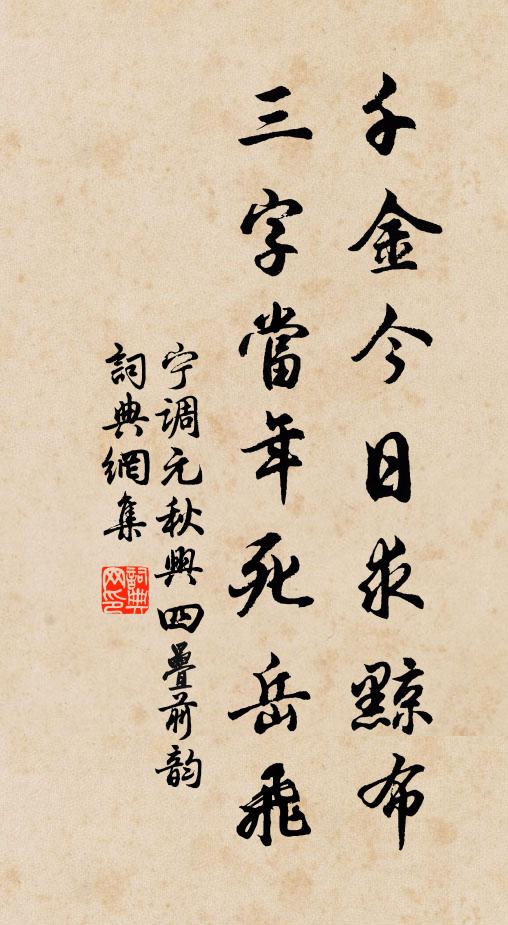 千金今日求黥布
三字當年死岳飛
宁調元秋興四疊前韵
詞典網集
詞典網印